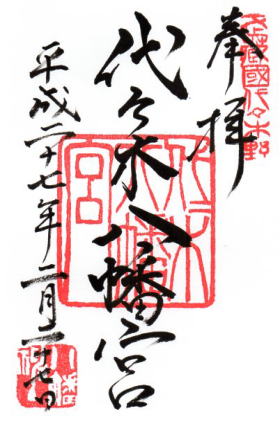 奉拝
武蔵國代々木野
代々木八幡宮
代々木八幡宮
平成二十七年二月二十七日